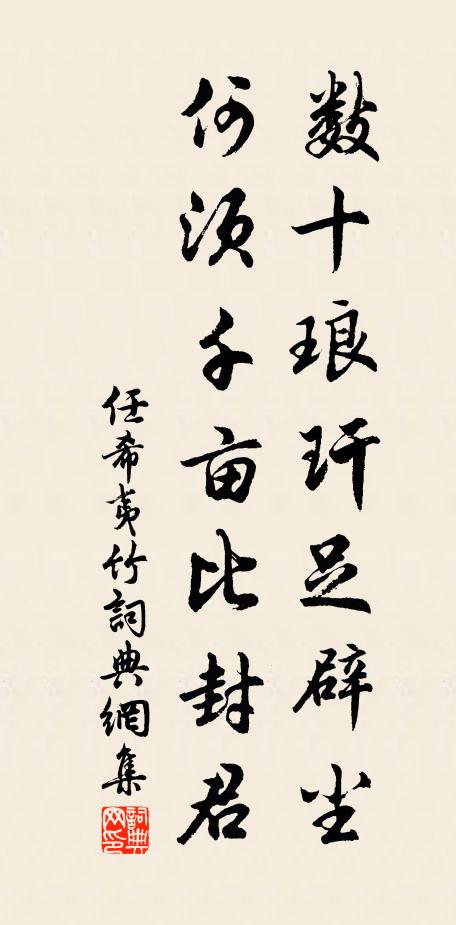 数十琅玕足辟尘
何须千亩比封君
任希夷竹詞典網集
詞典网印